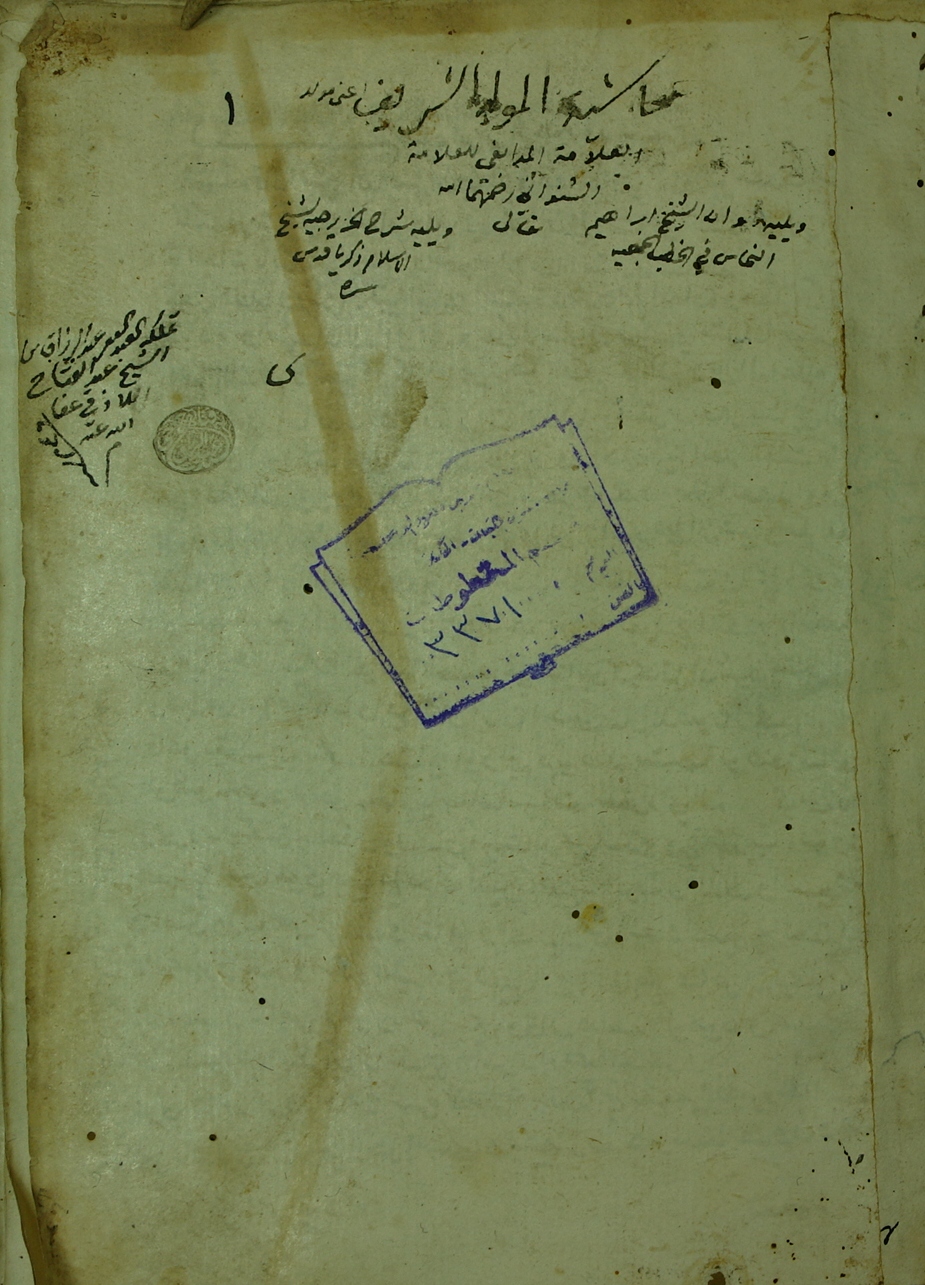 حاشية المولد الشريف اعنى مولد
١
العلامة المدابغى للعلامة
الشنوانى رحمهما الله
تعالى
ويليه ديوان الشيخ ابراهيم
النحاس في الخطب الجمعيه
ويليه شرح الخزرجيه لشيخ
الاسلام زكريا قدس
سره
تملكه العبد الفقير عبد الرزاق بن
الشيخ عبد الفتاح
اللاذقي عفا
الله عنه
المخطوطات
٣٣٧١